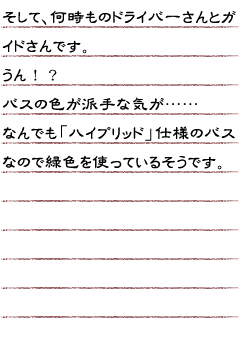 そして、何時ものドライバーさんとガ
イドさんです。
うん！？
バスの色が派手な気が……
なんでも「ハイブリッド」仕様のバス
なので緑色を使っているそうです。